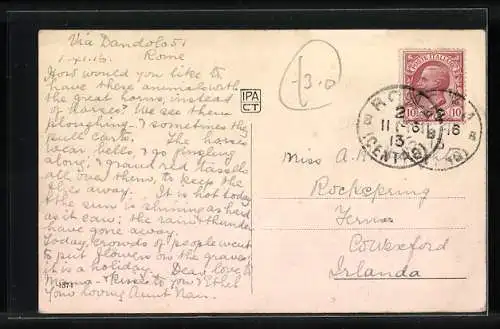 Via Dandolo 51
1-XI.16. Rome
How would you like to
have these animals with
the great horns, instead
of horses? We see them
ploughing & sometimes they
pull carts. The horses
wear bells, & go jingling
along, & grand red tassels
all over them, to keep the
flies away. It is hot today
the sun is shining as hard
as it can: the rain & thunder
have gone away.
Today, crowds of people went
to put flowers on the graves
it is a holiday. Dear love to
& kisses to you & Ethel
Your loving Aunt
1874
IPA
CT
-3.0
POSTE ITALIANE
10 10
ROMA
11
13
(CENTRO)
Miss A.
Ferns
Co Wexford
Irlanda